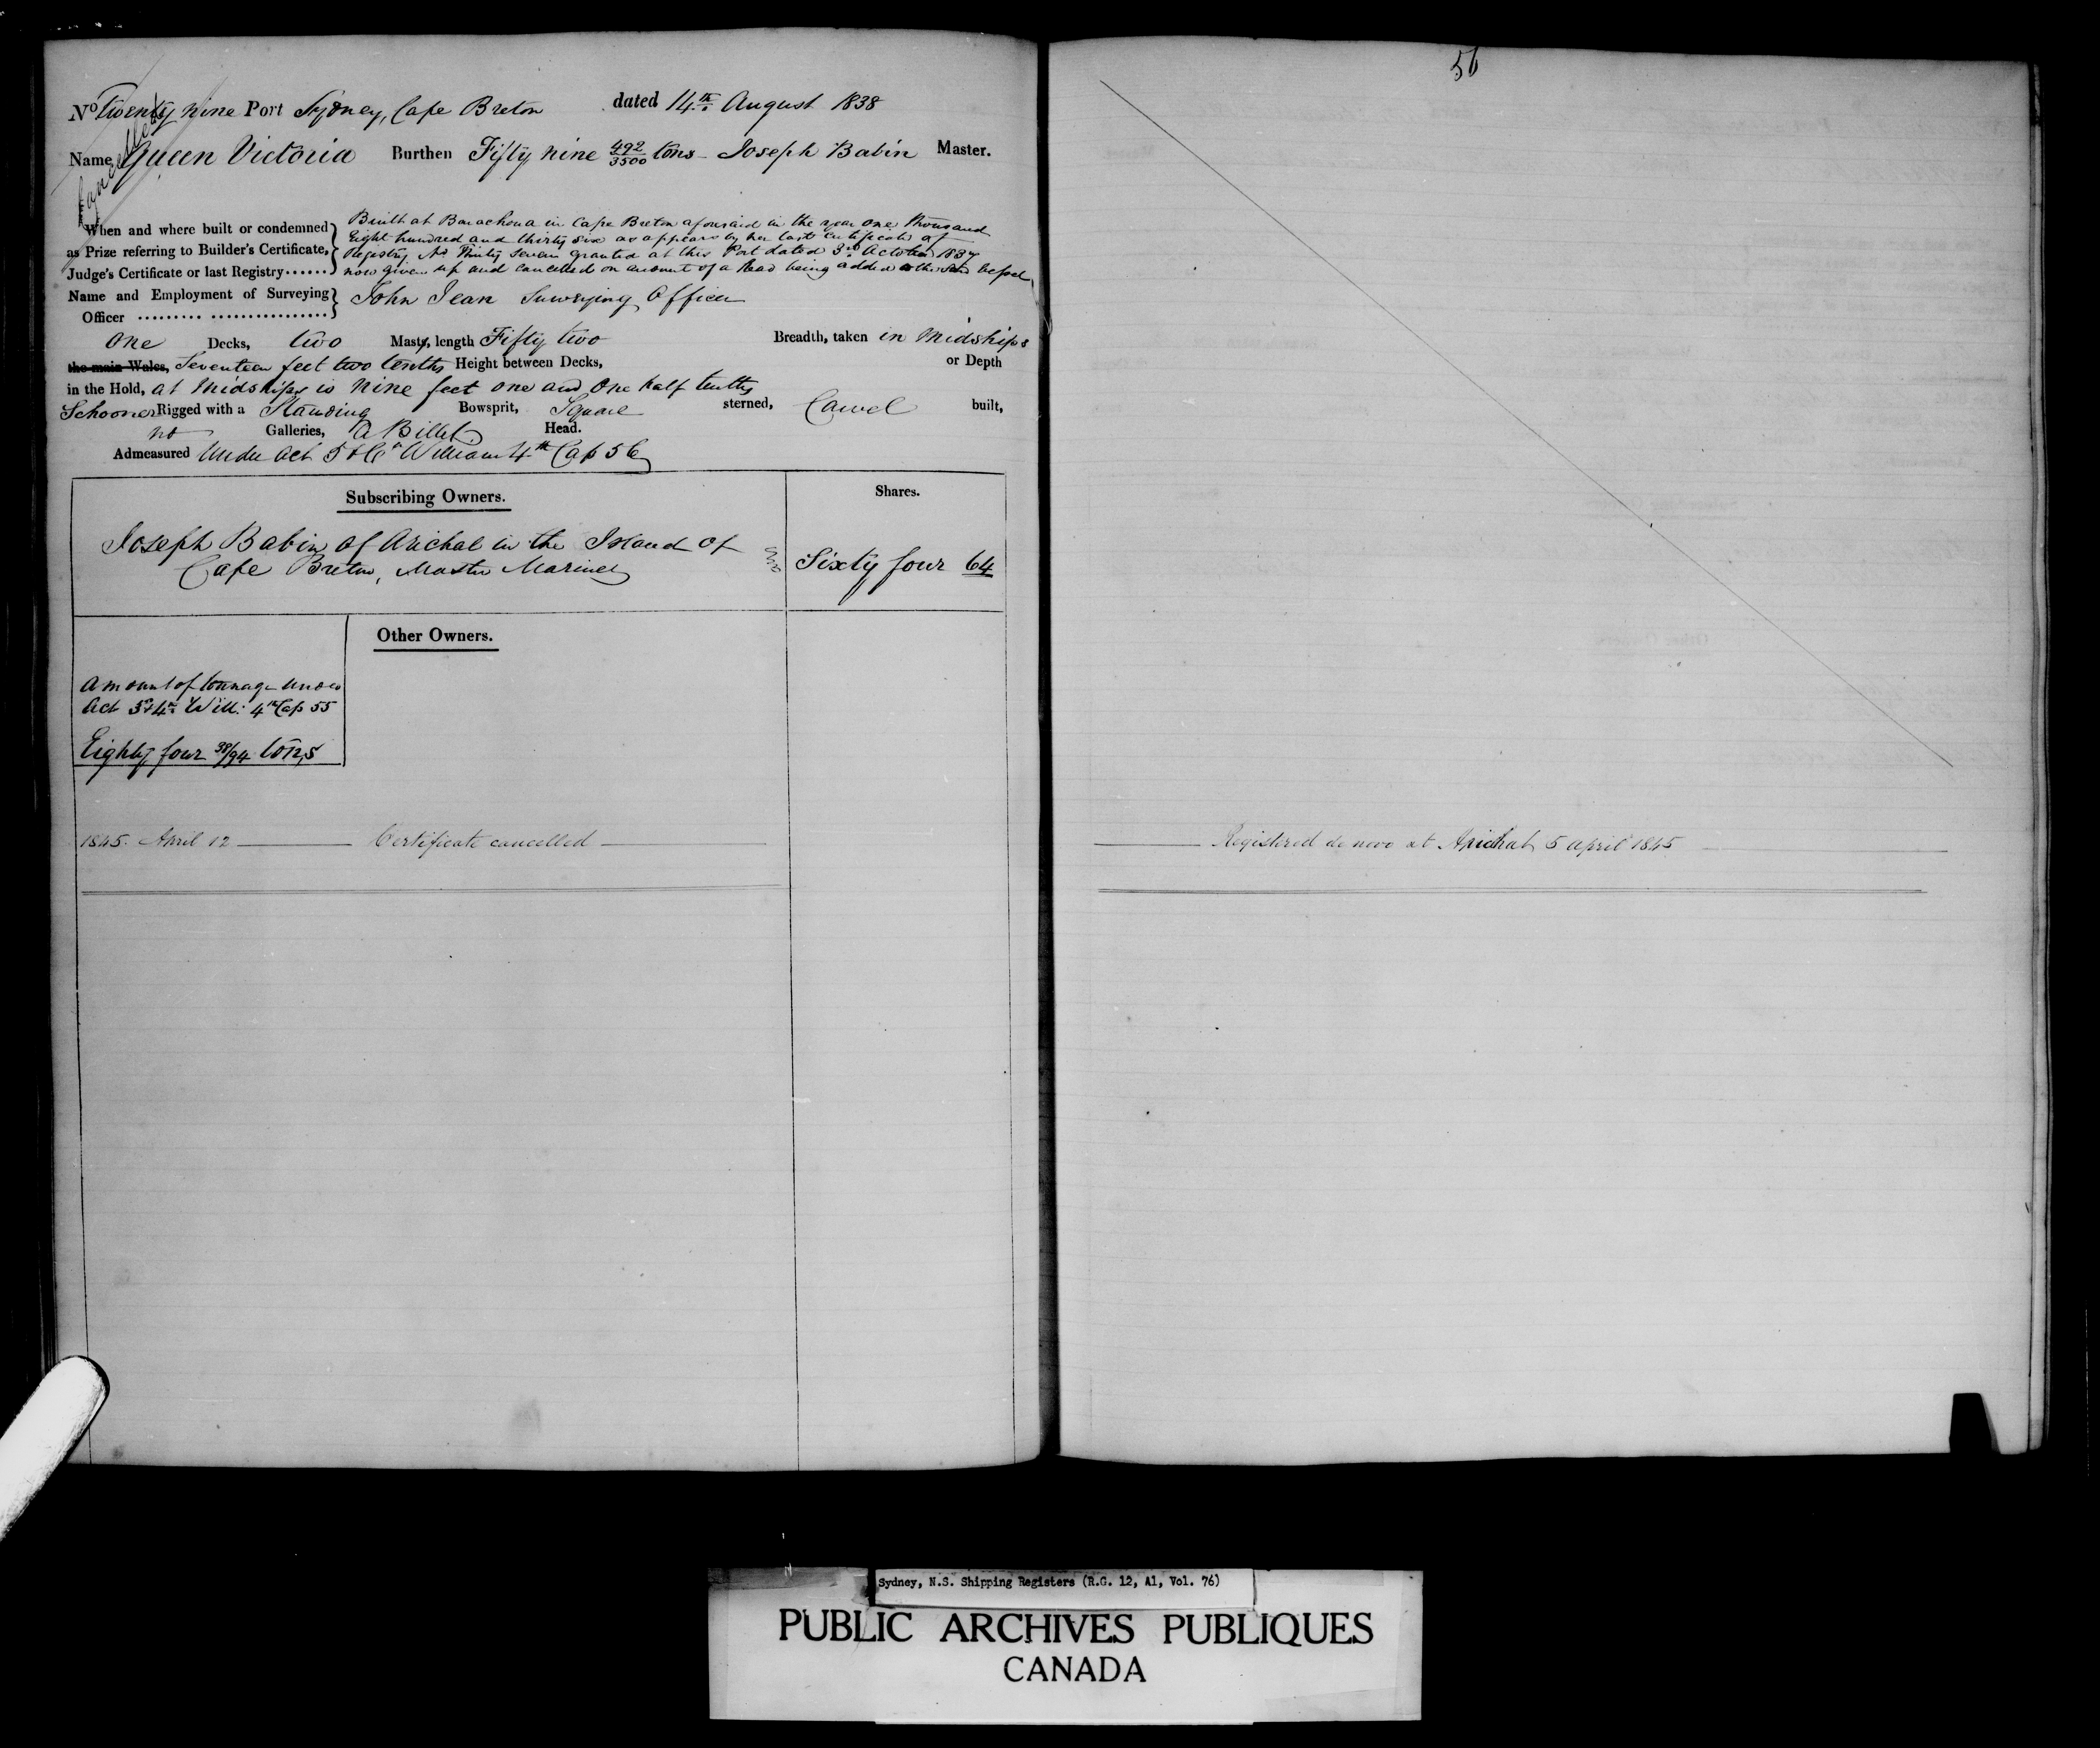 56
No Twenty nine Port Sydney, Cape Breton dated 14th August 1838
Cancelled
Name Queen Victoria Burthen Fifty nine 492/3500 tons - Joseph Babin Master.
When and where built or condemned as Prize referring to Builder's Certificate, Judge's Certificate or last Registry......
Built at Barachoua in Cape Breton aforesaid in the year one thousand
Eight hundred and thirty six as appears by her last certificate of
Registry No Thirty Seven granted at this Port dated 3rd October 1837
now given up and cancelled on account of a Head being added to the said Vessel
Name and Employment of Surveying Officer ......... ................ John Jean Surveying Officer
One Decks, two Masts, length Fifty two Breadth, taken in Midships
the main Wales, Seventeen feet two tenths Height between Decks, or Depth
in the Hold, at Midships is nine feet one and one half tenths
Schooner Rigged with a Standing Bowsprit, Square sterned, Carvel built,
no Galleries, a Billet Head.
Admeasured Under Act 5 & 6th William 4th Cap 56
Subscribing Owners. Shares.
Joseph Babin of Arichat in the Island of
Cape Breton, Master Mariner
Sixty four 64
Other Owners.
Amount of tonnage under
Act 3d & 4th Will: 4th Cap 55
Eighty four 38/94 tons
1845. April 12 Certificate cancelled Registered de novo at Arichat 5 April 1845
Sydney, N.S. Shipping Registers (R.G. 12, A1, Vol. 76)
PUBLIC ARCHIVES PUBLIQUES
CANADA